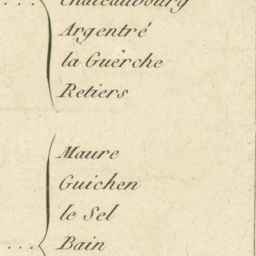 Châteaubourg
Argentré
la Guerche
Retiers
Maure
Guichen
le Sel
Bain